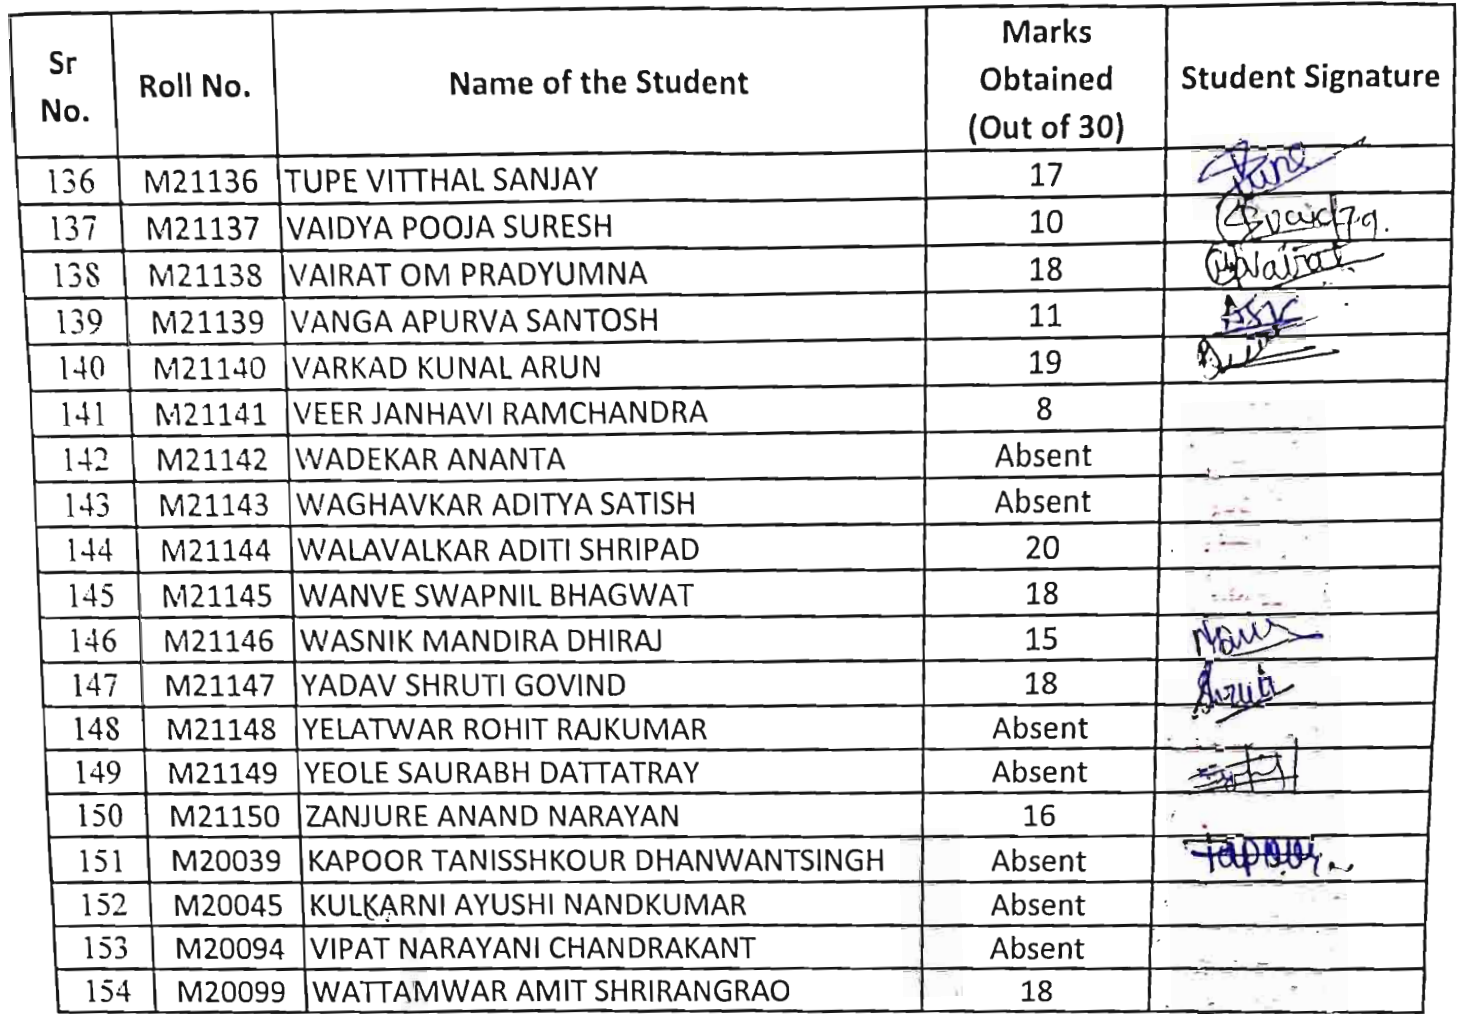 Sr No. Roll No. Name of the Student Marks Obtained (Out of 30) Student Signature
136 M21136 TUPE VITTHAL SANJAY 17
137 M21137 VAIDYA POOJA SURESH 10
138 M21138 VAIRAT OM PRADYUMNA 18 Vairat
139 M21139 VANGA APURVA SANTOSH 11 ASV
140 M21140 VARKAD KUNAL ARUN 19
141 M21141 VEER JANHAVI RAMCHANDRA 8
142 M21142 WADEKAR ANANTA Absent
143 M21143 WAGHAVKAR ADITYA SATISH Absent
144 M21144 WALAVALKAR ADITI SHRIPAD 20
145 M21145 WANVE SWAPNIL BHAGWAT 18
146 M21146 WASNIK MANDIRA DHIRAJ 15
147 M21147 YADAV SHRUTI GOVIND 18
148 M21148 YELATWAR ROHIT RAJKUMAR Absent
149 M21149 YEOLE SAURABH DATTATRAY Absent
150 M21150 ZANJURE ANAND NARAYAN 16
151 M20039 KAPOOR TANISSHKOUR DHANWANTSINGH Absent
152 M20045 KULKARNI AYUSHI NANDKUMAR Absent
153 M20094 VIPAT NARAYANI CHANDRAKANT Absent
154 M20099 WATTAMWAR AMIT SHRIRANGRAO 18